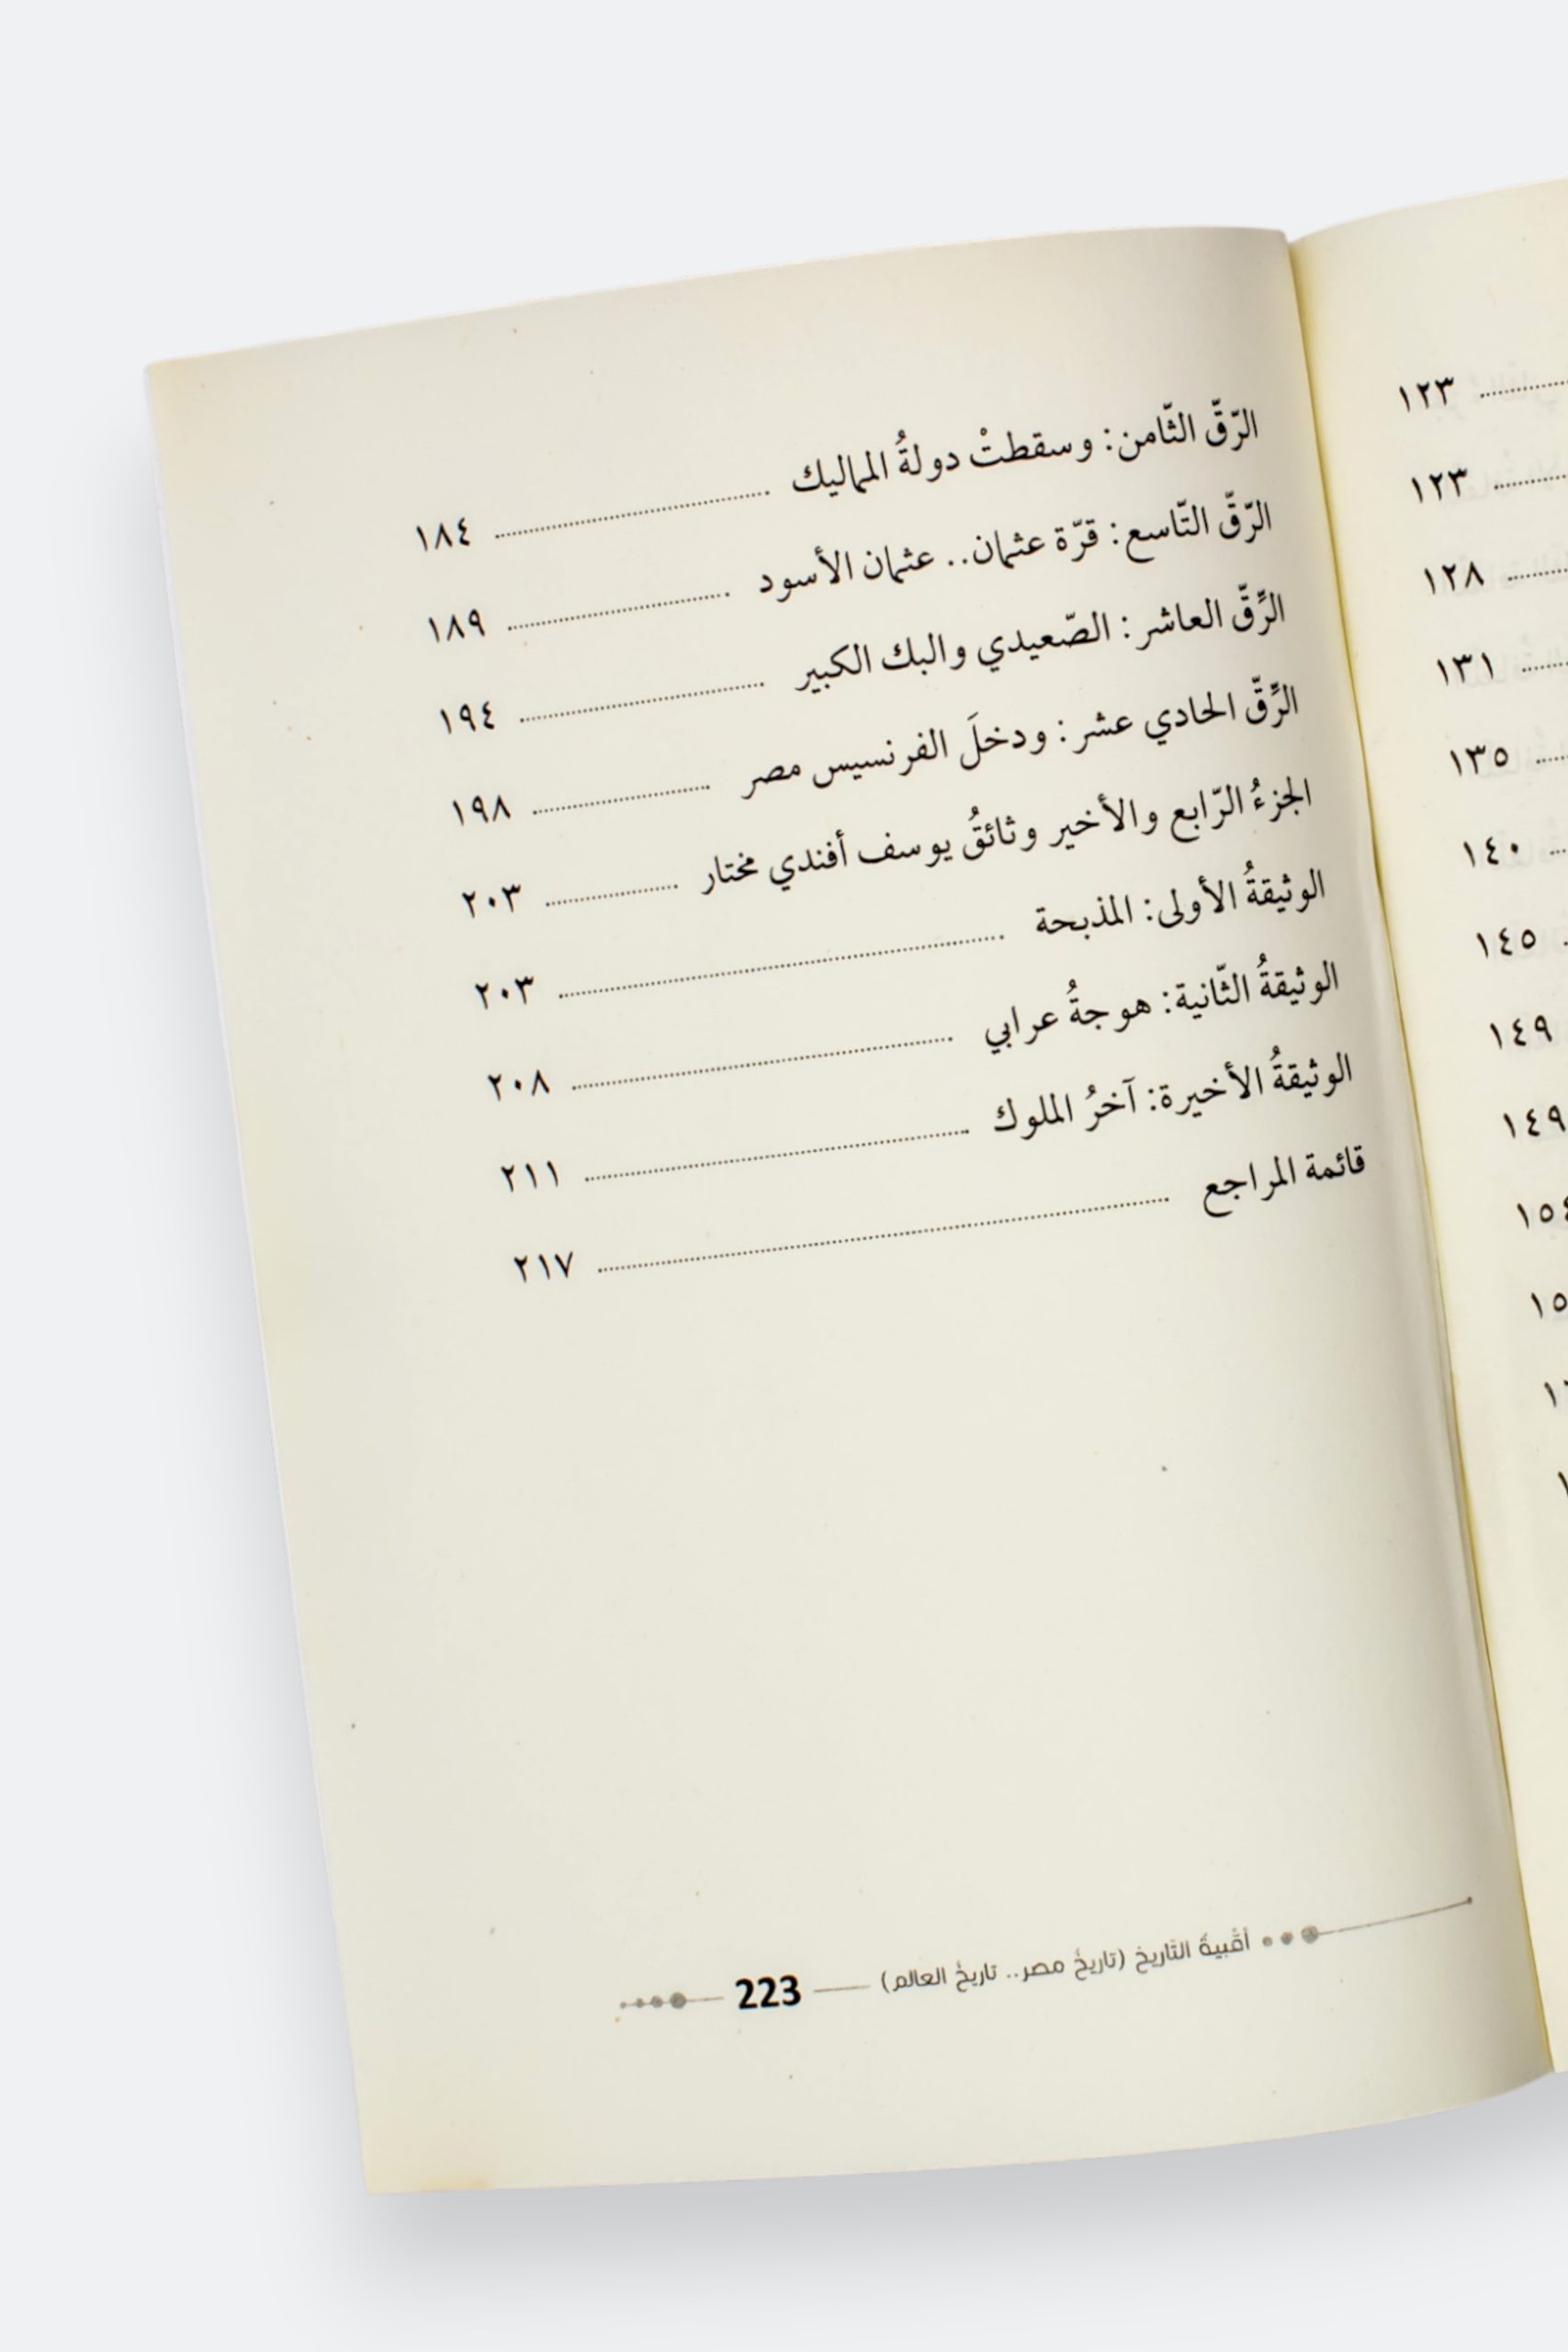 ١٢٣
١٢٣
١٢٨
١٣١
١٣٥
١٤٠
١٤٥
١٤٩
١٤٩
الرّقّ الثّامن: وسقطتْ دولةُ المماليك ١٨٤
الرّقّ التّاسع: قرّة عثمان.. عثمان الأسود ١٨٩
الرِّقّ العاشر: الصّعيدي والبك الكبير ١٩٤
الرِّقّ الحادي عشر: ودخلَ الفرنسيس مصر ١٩٨
الجزءُ الرّابع والأخير وثائقُ يوسف أفندي مختار ٢٠٣
الوثيقةُ الأولى: المذبحة ٢٠٣
الوثيقةُ الثّانية: هوجةُ عرابي ٢٠٨
الوثيقةُ الأخيرة: آخرُ الملوك ٢١١
قائمة المراجع ٢١٧
أقْبيةُ التّاريخ (تاريخُ مصر.. تاريخُ العالم) 223